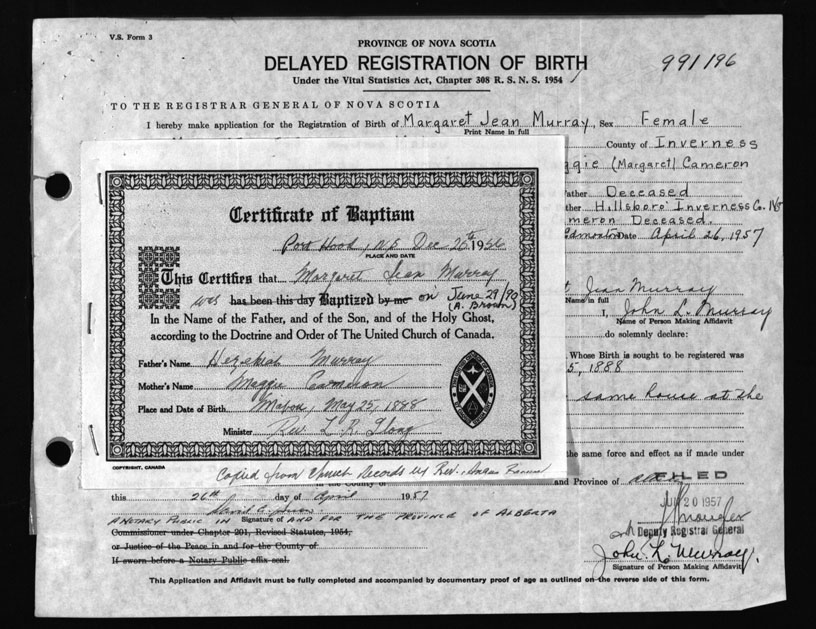 V.S. Form 3
PROVINCE OF NOVA SCOTIA
DELAYED REGISTRATION OF BIRTH
991196
Under the Vital Statistics Act, Chapter 308 R. S. N. S. 1954
TO THE REGISTRAR GENERAL OF NOVA SCOTIA
I hereby make application for the Registration of Birth of Margaret Jean Murray, Sex Female
Print Name in full
County of Inverness
ggie (Margaret) Cameron
ather Deceased
ther Hillsboro Inverness Co. NS
meron Deceased.
Edmonton Date April 26, 1957
t Jean Murray
Name in full
I, John L. Murray
Name of Person Making Affidavit
do solemnly declare:
Whose Birth is sought to be registered was
5, 1888
same house at the
the same force and effect as if made under
Certificate of Baptism
Port Hood, N.S. Dec 26th 1956
PLACE AND DATE
This Certifies that Margaret Jean Murray
was has been this day Baptized by me on June 29/90
(A. Brown)
In the Name of the Father, and of the Son, and of the Holy Ghost,
according to the Doctrine and Order of The United Church of Canada.
Father's Name Hezekiah Murray
Mother's Name Maggie Cameron
Place and Date of Birth Mabou, May 25, 1888
Minister Rev. L. R.
COPYRIGHT, CANADA
Copied from Church Records by Rev.
in the County of
and Province of
FILED
this 26th day of April 1957
JUN 20 1957
A NOTARY PUBLIC IN Signature of AND FOR THE PROVINCE OF ALBERTA
Commissioner under Chapter 201, Revised Statutes, 1954,
Deputy Registrar General
or Justice of the Peace in and for the County of
John L. Murray.
If sworn before a Notary Public affix seal.
Signature of Person Making Affidavit
This Application and Affidavit must be fully completed and accompanied by documentary proof of age as outlined on the reverse side of this form.